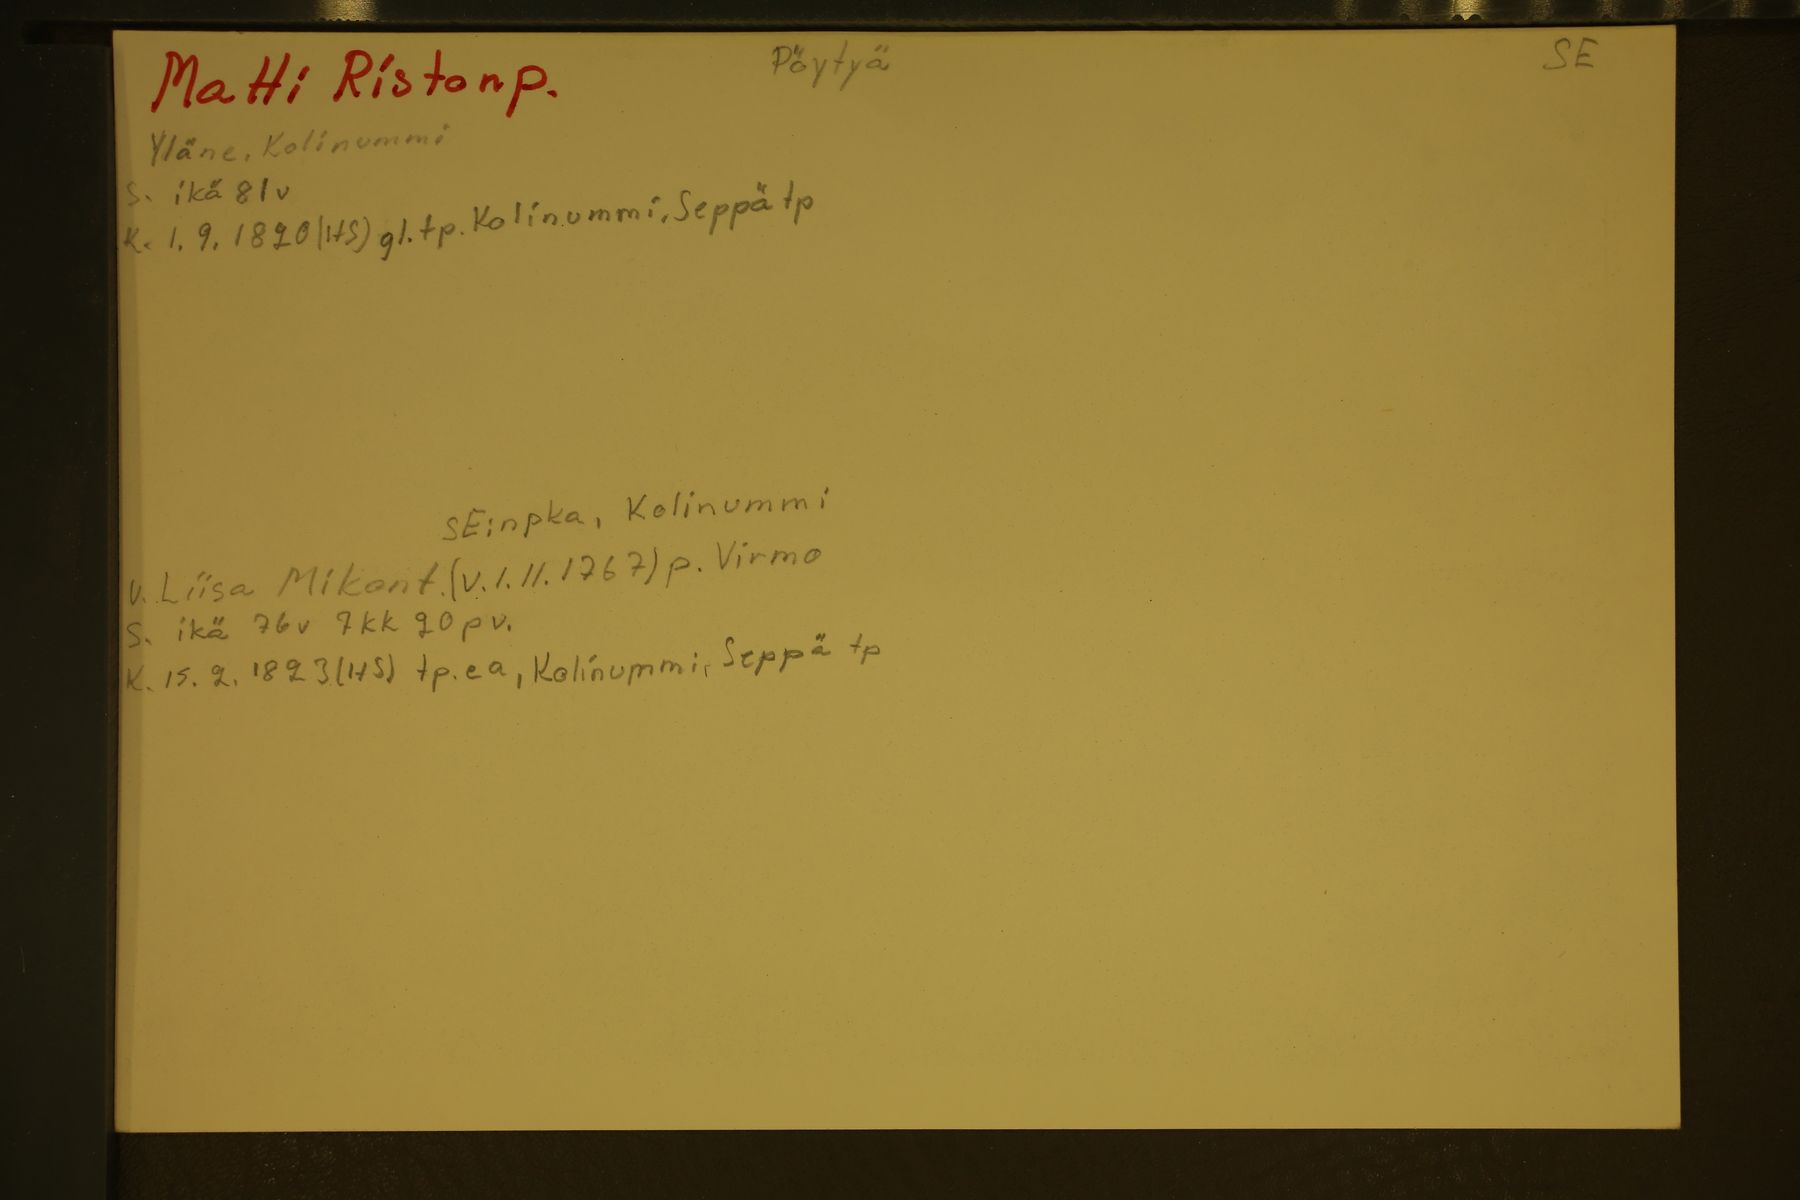 Matti Ristonp.
Pöytyä
SE
Yläne, Kolinummi
S. ikä 81v
K. 1.9.1820(HS) gl.tp. Kolinummi, Seppä tp
SEinpka, Kolinummi
V. Liisa Mikont.(V.1.11.1767) p. Virmo
S. ikä 76v 7kk 20pv.
K. 15.2.1823(HS) tp.ea, Kolinummi, Seppä tp